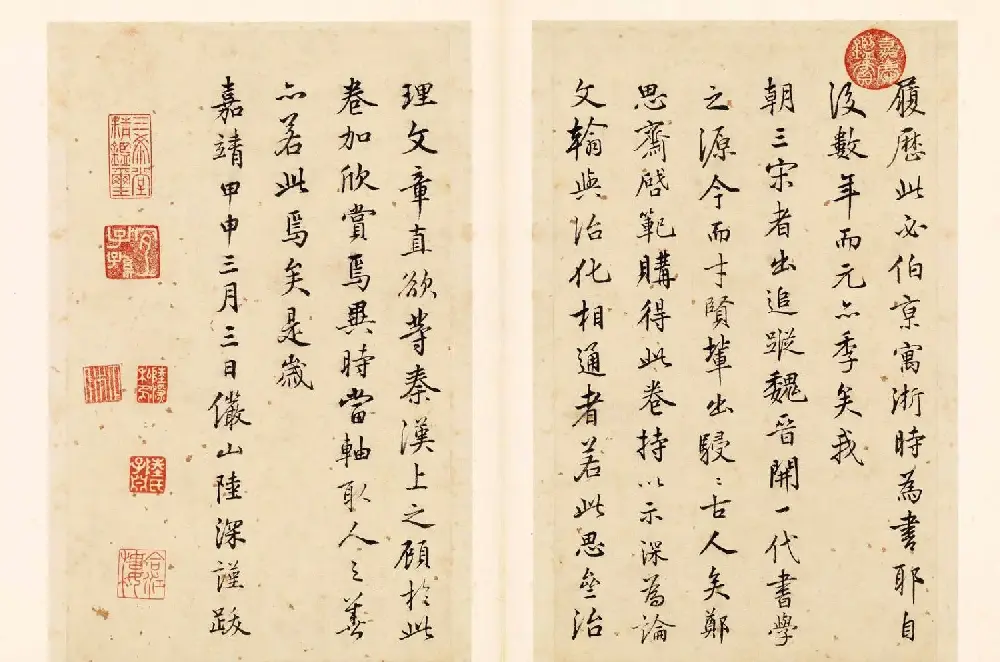 履歷此必伯京寓浙時為書耶自
後數年而元亦季矣我
朝三宋者出追蹤魏晉開一代書學
之源今而才賢輩出駸〻古人矣鄭
思齋啓範購得此卷持以示深為論
文翰與治化相通者若此思齋治
理文章直欲等秦漢上之顧於此
卷加欣賞焉異時當軸取人之善
亦若此焉矣是歲
嘉靖甲申三月三日儼山陸深謹跋
三希堂精鑑璽
宜子孫